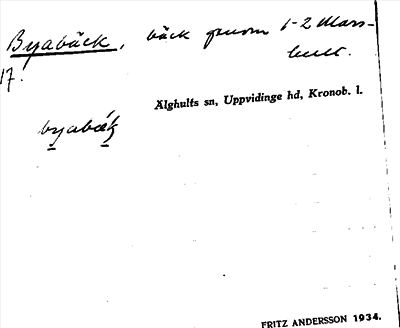 Byabäck, bäck genom 1-2 Mars-
hult.
17.
Älghults sn, Uppvidinge hd, Kronob. l.
byabäk
FRITZ ANDERSSON 1934.